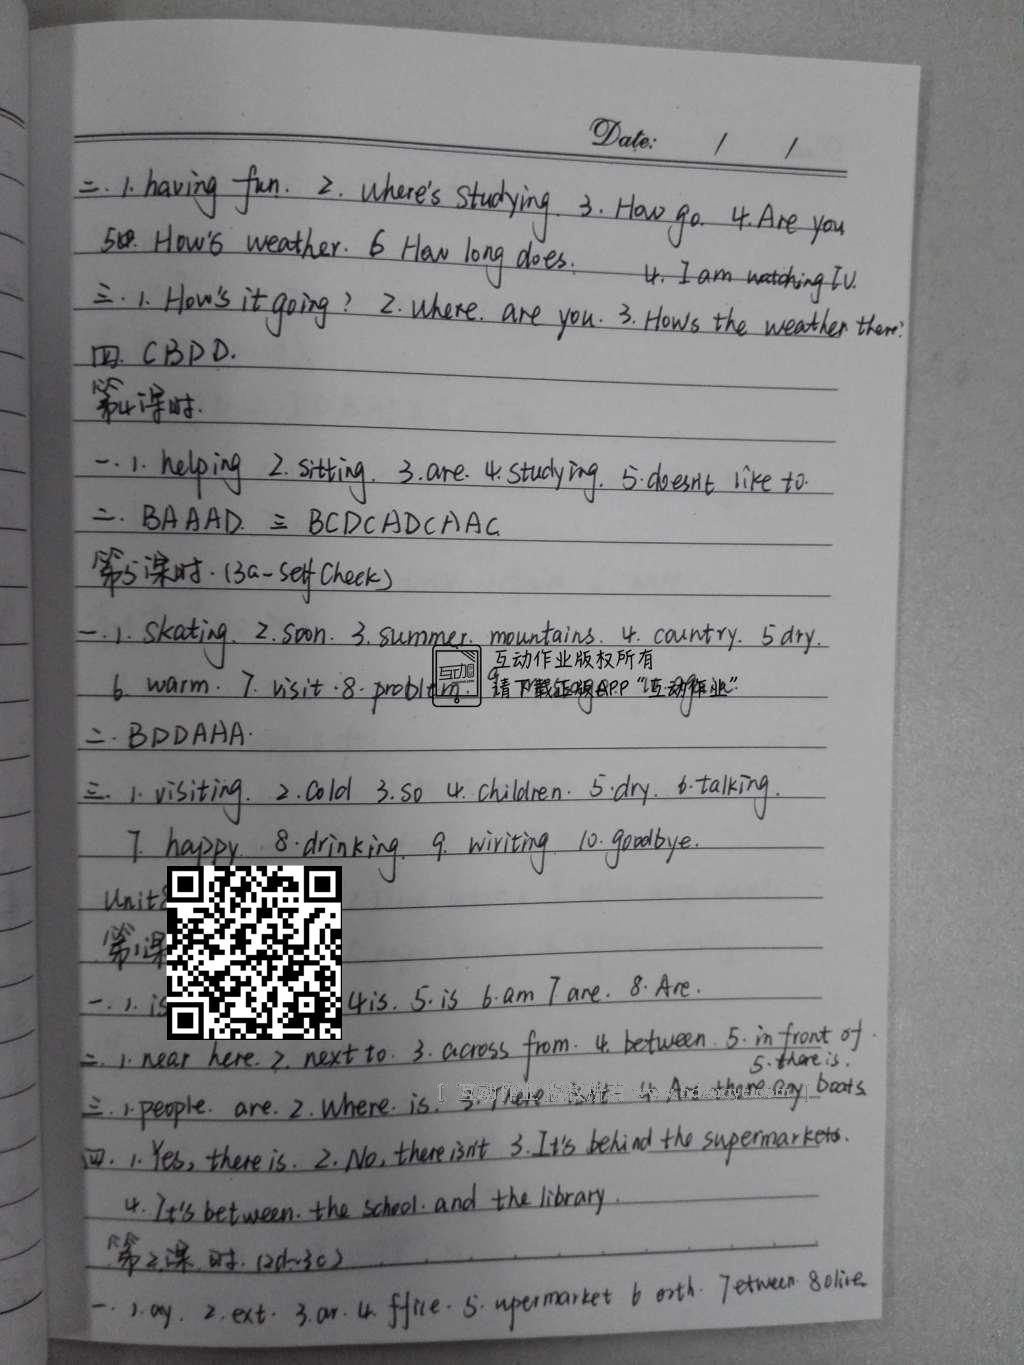 Date: / /
二. 1. having fun. 2. where's studying. 3. How go. 4. Are you
5. How's weather. 6 How long does.
4. I am watching TV.
三. 1. How's it going? 2. where. are you. 3. How's the weather there?
四. CBDD.
第4课时.
一. 1. helping 2. sitting. 3. are. 4. studying. 5. doesn't like to.
二. BAAAD. 三 BCDCADCAAC
第5课时. (3a-Self Check)
一. 1. skating. 2. soon. 3. summer. mountains. 4. country. 5 dry.
互动作业版权所有
6. warm. 7. visit. 8. problem. 9.
互动
请下载正版APP“互动作业”
二. BDDAAA.
三. 1. visiting. 2. cold 3. so 4. children. 5. dry. 6. talking.
7. happy 8. drinking. 9. wiriting 10. goodbye.
Unit8
第1课
一. 1. is 4 is. 5. is 6. am 7 are. 8. Are.
二. 1. near here. 2. next to. 3. across from. 4. between. 5. in front of.
5. there is.
三. 1. people. are. 2. Where. is. 3. There isn't 4. Are there any boats
四. 1. Yes, there is. 2. No, there isn't 3. It's behind the supermarkets.
4. It's between. the school. and the library.
第2课时. (2d~3c)
一. 1. ay. 2. ext. 3. ar. 4. ffice. 5. upermarket 6 orth. 7 etween. 8 olice